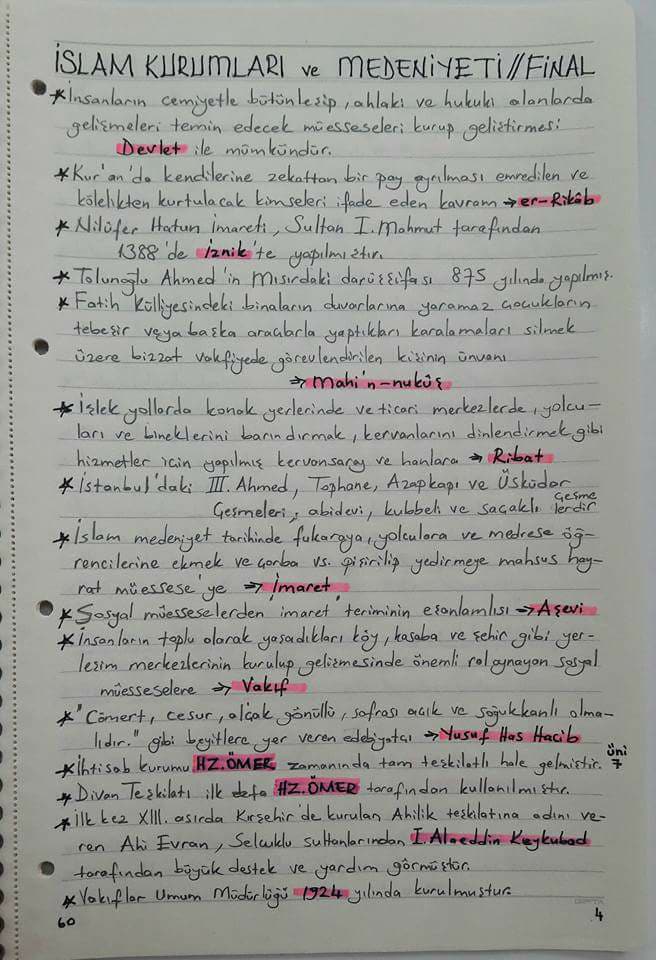 İSLAM KURUMLARI ve MEDENİYETİ // FİNAL
* İnsanların cemiyetle bütünleşip, ahlaki ve hukuki alanlarda
gelişmeleri temin edecek müesseseleri kurup geliştirmesi
Devlet ile mümkündür.
* Kur'an'da kendilerine zekattan bir pay ayrılması emredilen ve
kölelikten kurtulacak kimseleri ifade eden kavram → er-Rikâb
* Nilüfer Hatun İmareti, Sultan I. Mahmut tarafından
1388'de İznik'te yapılmıştır.
* Tolunoğlu Ahmed'in Mısırdaki darüşşifası 875 yılında yapılmış.
* Fatih Külliyesindeki binaların duvarlarına yaramaz çocukların
tebeşir veya başka araçlarla yaptıkları karalamaları silmek
üzere bizzat vakfiyede görevlendirilen kişinin ünvanı
⇒ Mahi'n-nukûş
* İşlek yollarda konak yerlerinde ve ticari merkezlerde, yolcu-
ları ve bineklerini barındırmak, kervanlarını dinlendirmek gibi
hizmetler için yapılmış kervansaray ve hanlara → Ribat
* İstanbul'daki III. Ahmed, Tophane, Azapkapı ve Üsküdar
Çeşmeleri; abidevi, kubbeli ve saçaklı çeşme
lerdir
* İslam medeniyet tarihinde fukaraya, yolculara ve medrese öğ-
rencilerine ekmek ve çorba vs. pişirilip yedirmeye mahsus hay-
rat müessese'ye ⇒ İmaret
* Sosyal müesseselerden imaret teriminin eşanlamlısı → Aşevi
* İnsanların toplu olarak yaşadıkları köy, kasaba ve şehir gibi yer-
leşim merkezlerinin kurulup gelişmesinde önemli rol oynayan sosyal
müesseselere ⇒ Vakıf
* "Cömert, cesur, alçak gönüllü, sofrası açık ve soğukkanlı olma-
lıdır." gibi beyitlere yer veren edebiyatçı → Yusuf Has Hacib
* İhtisab kurumu HZ. ÖMER zamanında tam teşkilatlı hale gelmiştir. üni
7
* Divan Teşkilatı ilk defa HZ. ÖMER tarafından kullanılmıştır.
* İlk kez XIII. asırda Kırşehir'de kurulan Ahilik teşkilatına adını ve-
ren Ahi Evran, Selçuklu sultanlarından I. Alaeddin Keykubad
tarafından büyük destek ve yardım görmüştür.
* Vakıflar Umum Müdürlüğü 1924 yılında kurulmuştur.
60 4